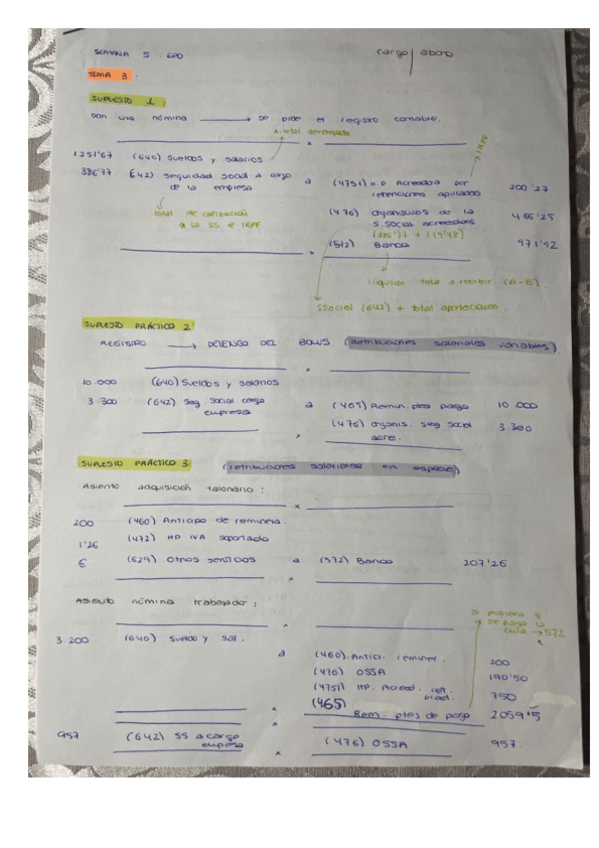 SEMANA 5 : EPD
cargo / abono
TEMA 3.
SUPUESTO 1:
Con una nómina → se pide el registro contable.
A. total devengado
1251'67 (640) Sueldos y salarios
386'77 (642) Seguridad social a cargo de la empresa
a (4751) H.P Acreedora por
retenciones aplicadas 200'27
(476) Organismos de la
S.Social acreedores 466'25
(512) Banco 971'92
total de cotización
a la SS e IRPF
líquido total a recibir (A-B).
SSocial (642) + total aportaciones.
SUPUESTO PRÁCTICO 2
REGISTRO → DEVENGO DEL BONUS. (retribuciones salariales variables)
10.000 (640) Sueldos y salarios
3.300 (642) Seg. Social cargo
empresa
a (465) Remun. ptes pago 10.000
(476) Organis. seg social
acre. 3.300
SUPUESTO PRÁCTICO 3 (retribuciones salariales en especie)
Asiento adquisición talonario:
200 (460) Anticipo de remunera.
(472) HP IVA soportado
6 (629) Otros servicios a (572) Banco 207'26
1'26
Asiento nómina trabajador:
3.200 (640) Sueldo y sal.
a (460). Antici. remuner. 200
(476) OSSA 190'50
(4751) HP. Acreed. ret.
pract. 750
(465)
Rem. ptes de pago 2059'5
957 (642) SS a cargo
empresa
(476) OSSA 957.